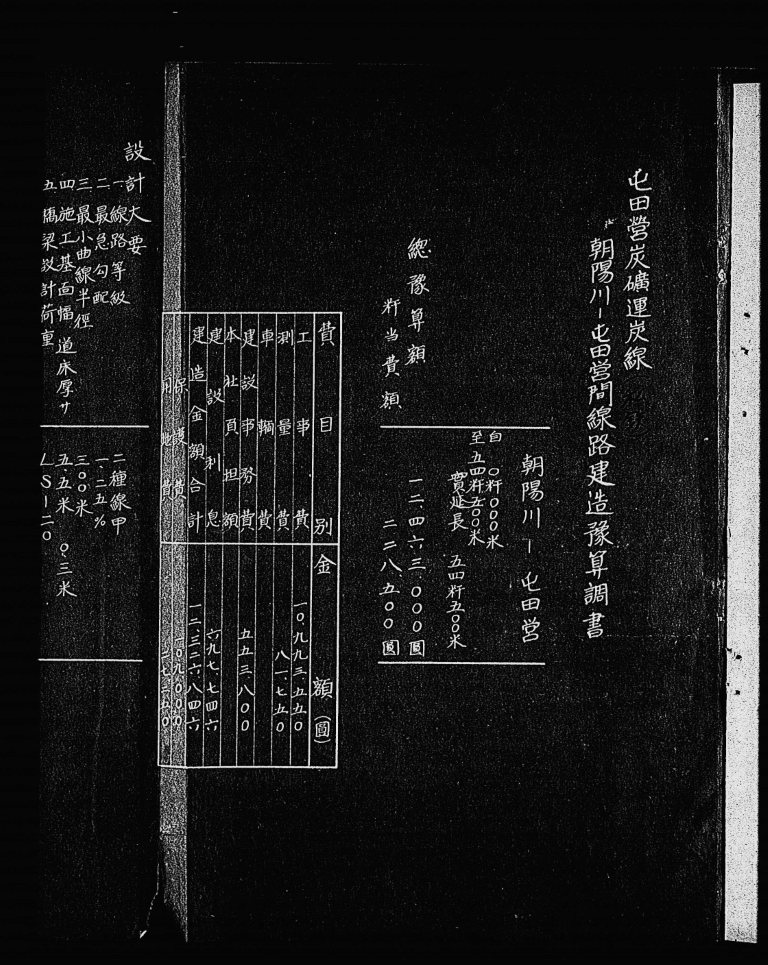 屯田營炭礦運炭線
朝陽川―屯田営間線路建造豫算調書
朝陽川―屯田営
自 〇粁〇〇〇米
至 五四粁五〇〇米
實延長 五四粁五〇〇米
總豫算額 一二、四六三、〇〇〇圓
粁当費額 二二八、五〇〇圓
費目別 金額(圓)
工事費 一〇、九九三、五五〇
測量費 八一、七五〇
車輛費
建設事務費 五五三、八〇〇
本社負担額
建設利息 六九七、七四六
建造金額合計 一二、三二六、八四六
保護費 一〇九、〇〇〇
用地費 二七、二五〇
設計大要
一 線路等級 二種線甲
二 最急勾配 一、二五%
三 最小曲線半徑 三〇〇米
四 施工基面幅 道床厚サ 五、五米 〇、三米
五 橋梁設計荷重 LS―二〇